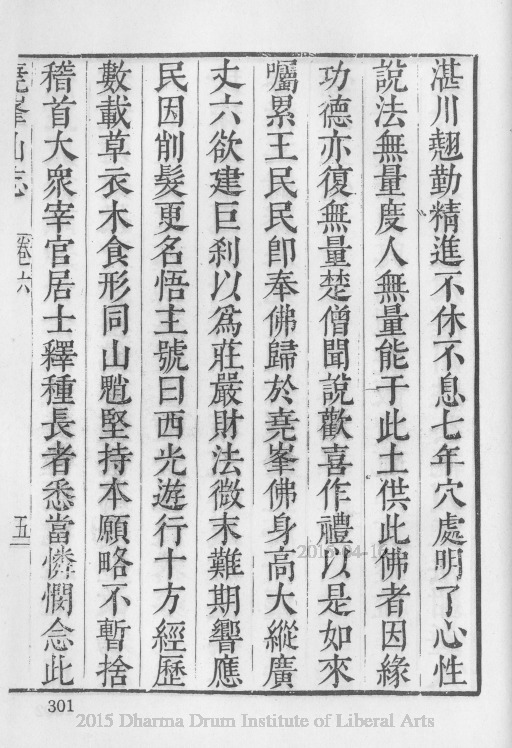 湛川翹勤精進不休不息七年穴處明了心性
說法無量度人無量能于此土供此佛者因緣
功德亦復無量楚僧聞說歡喜作禮以是如來
囑累王民民卽奉佛歸於堯峯佛身高大縱廣
丈六欲建巨刹以爲莊嚴財法微末難期響應
民因削髮更名悟主號曰西光遊行十方經歷
數載草衣木食形同山魈堅持本願略不暫捨
稽首大衆宰官居士釋種長者悉當憐憫念此
堯峯山志 卷六 五
301
2015-04-1
2015 Dharma Drum Institute of Liberal Arts